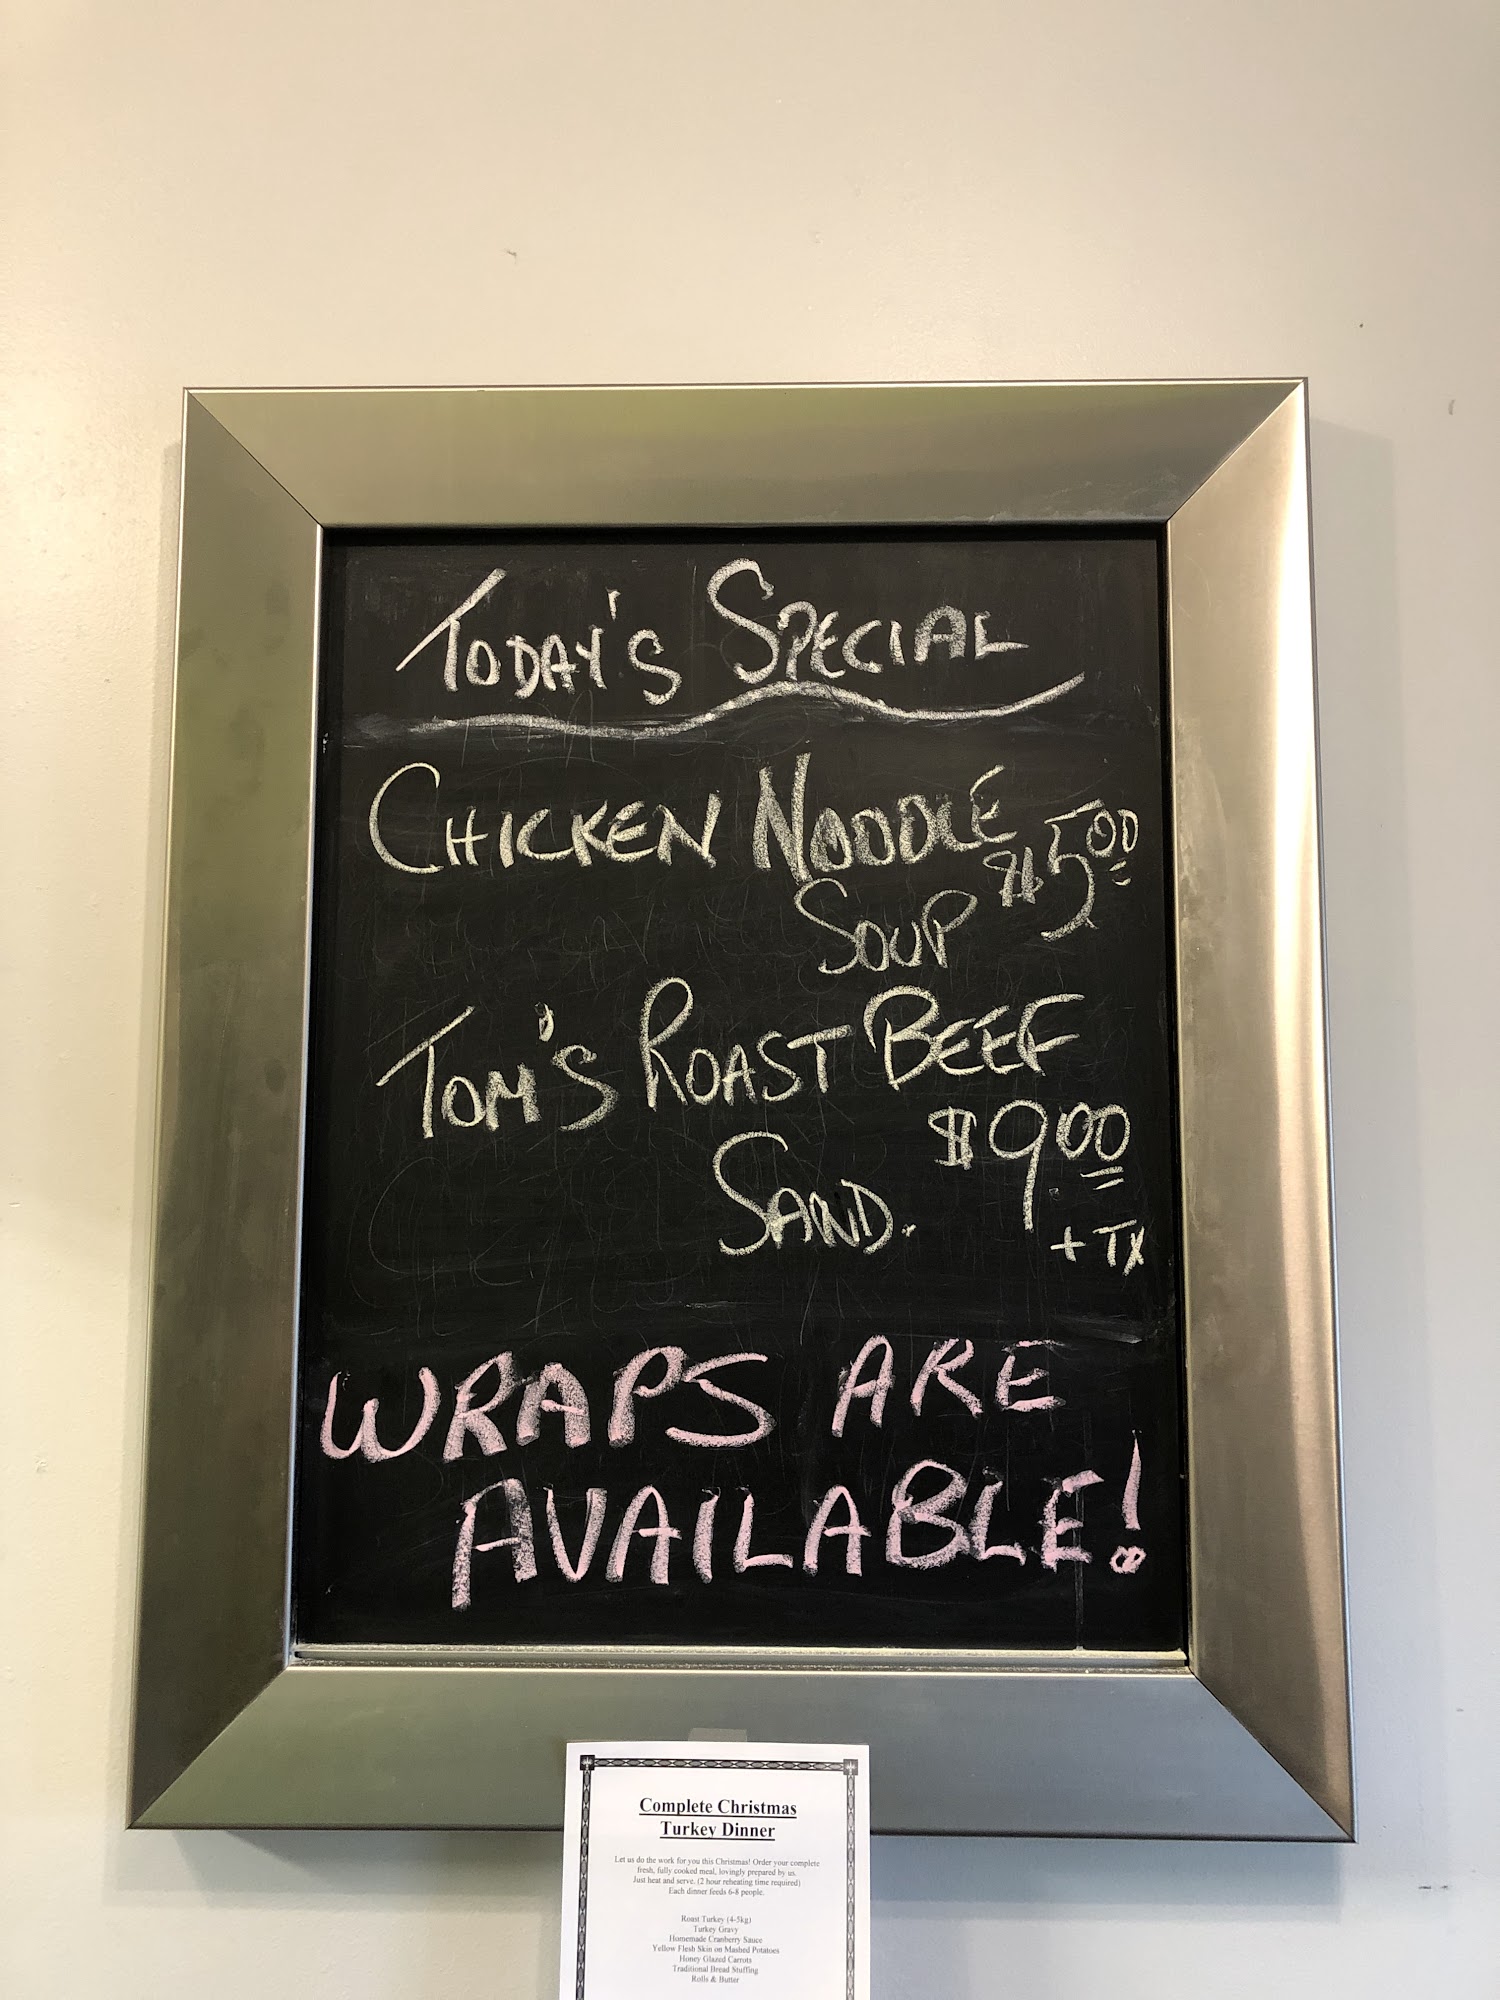 TODAY'S SPECIAL
CHICKEN NOODLE
$5.00
SOUP
TOM'S ROAST BEEF
$9.00
SAND.
+ TX
WRAPS ARE
AVAILABLE!
Complete Christmas
Turkey Dinner
Let us do the work for you this Christmas! Order your complete
fresh, fully cooked meal, lovingly prepared by us.
Just heat and serve. (2 hour reheating time required)
Each dinner feeds 6-8 people.
Roast Turkey (4-5kg)
Turkey Gravy
Homemade Cranberry Sauce
Yellow Flesh Skin on Mashed Potatoes
Honey Glazed Carrots
Traditional Bread Stuffing
Rolls & Butter